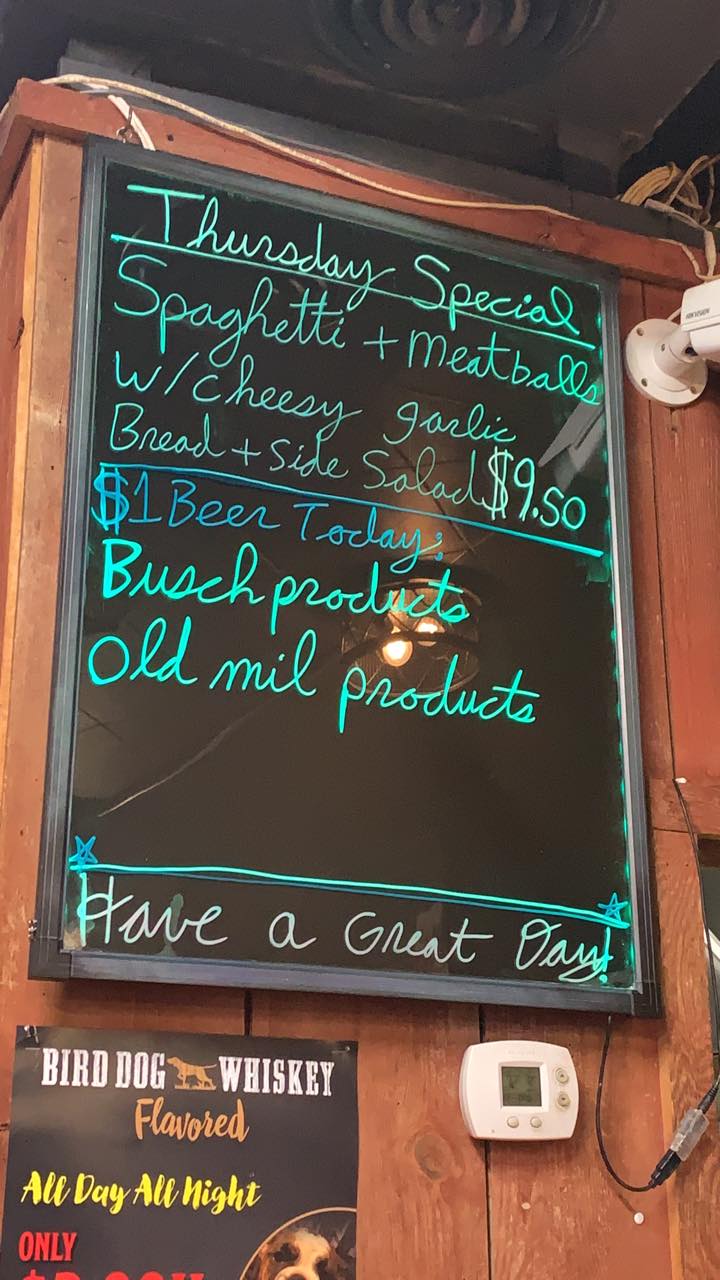 Thursday Special
Spaghetti + meatballs
w/cheesy garlic
Bread + Side Salad $9.50
$1 Beer Today:
Busch products
Old mil products
Have a Great Day!
HIKVISION
BIRD DOG WHISKEY
Flavored
All Day All Night
ONLY